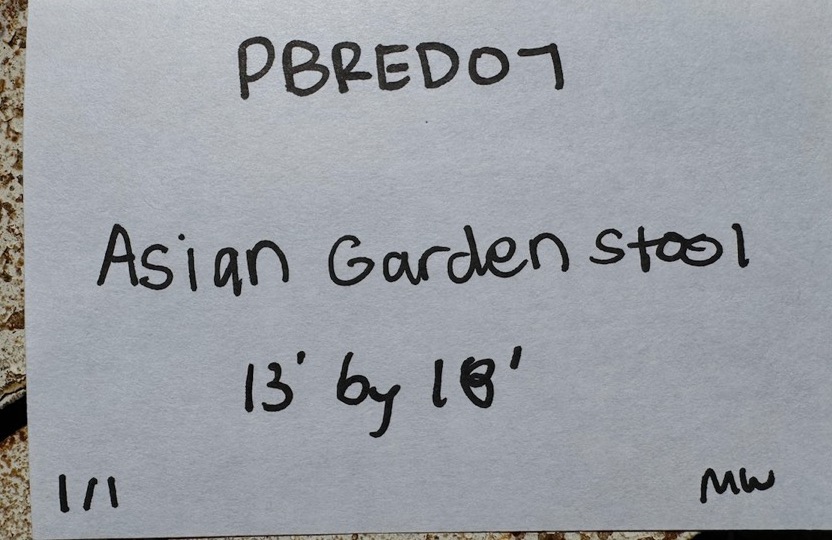 PBRED07
Asian Garden stool
13' by 18'
1/1
MW